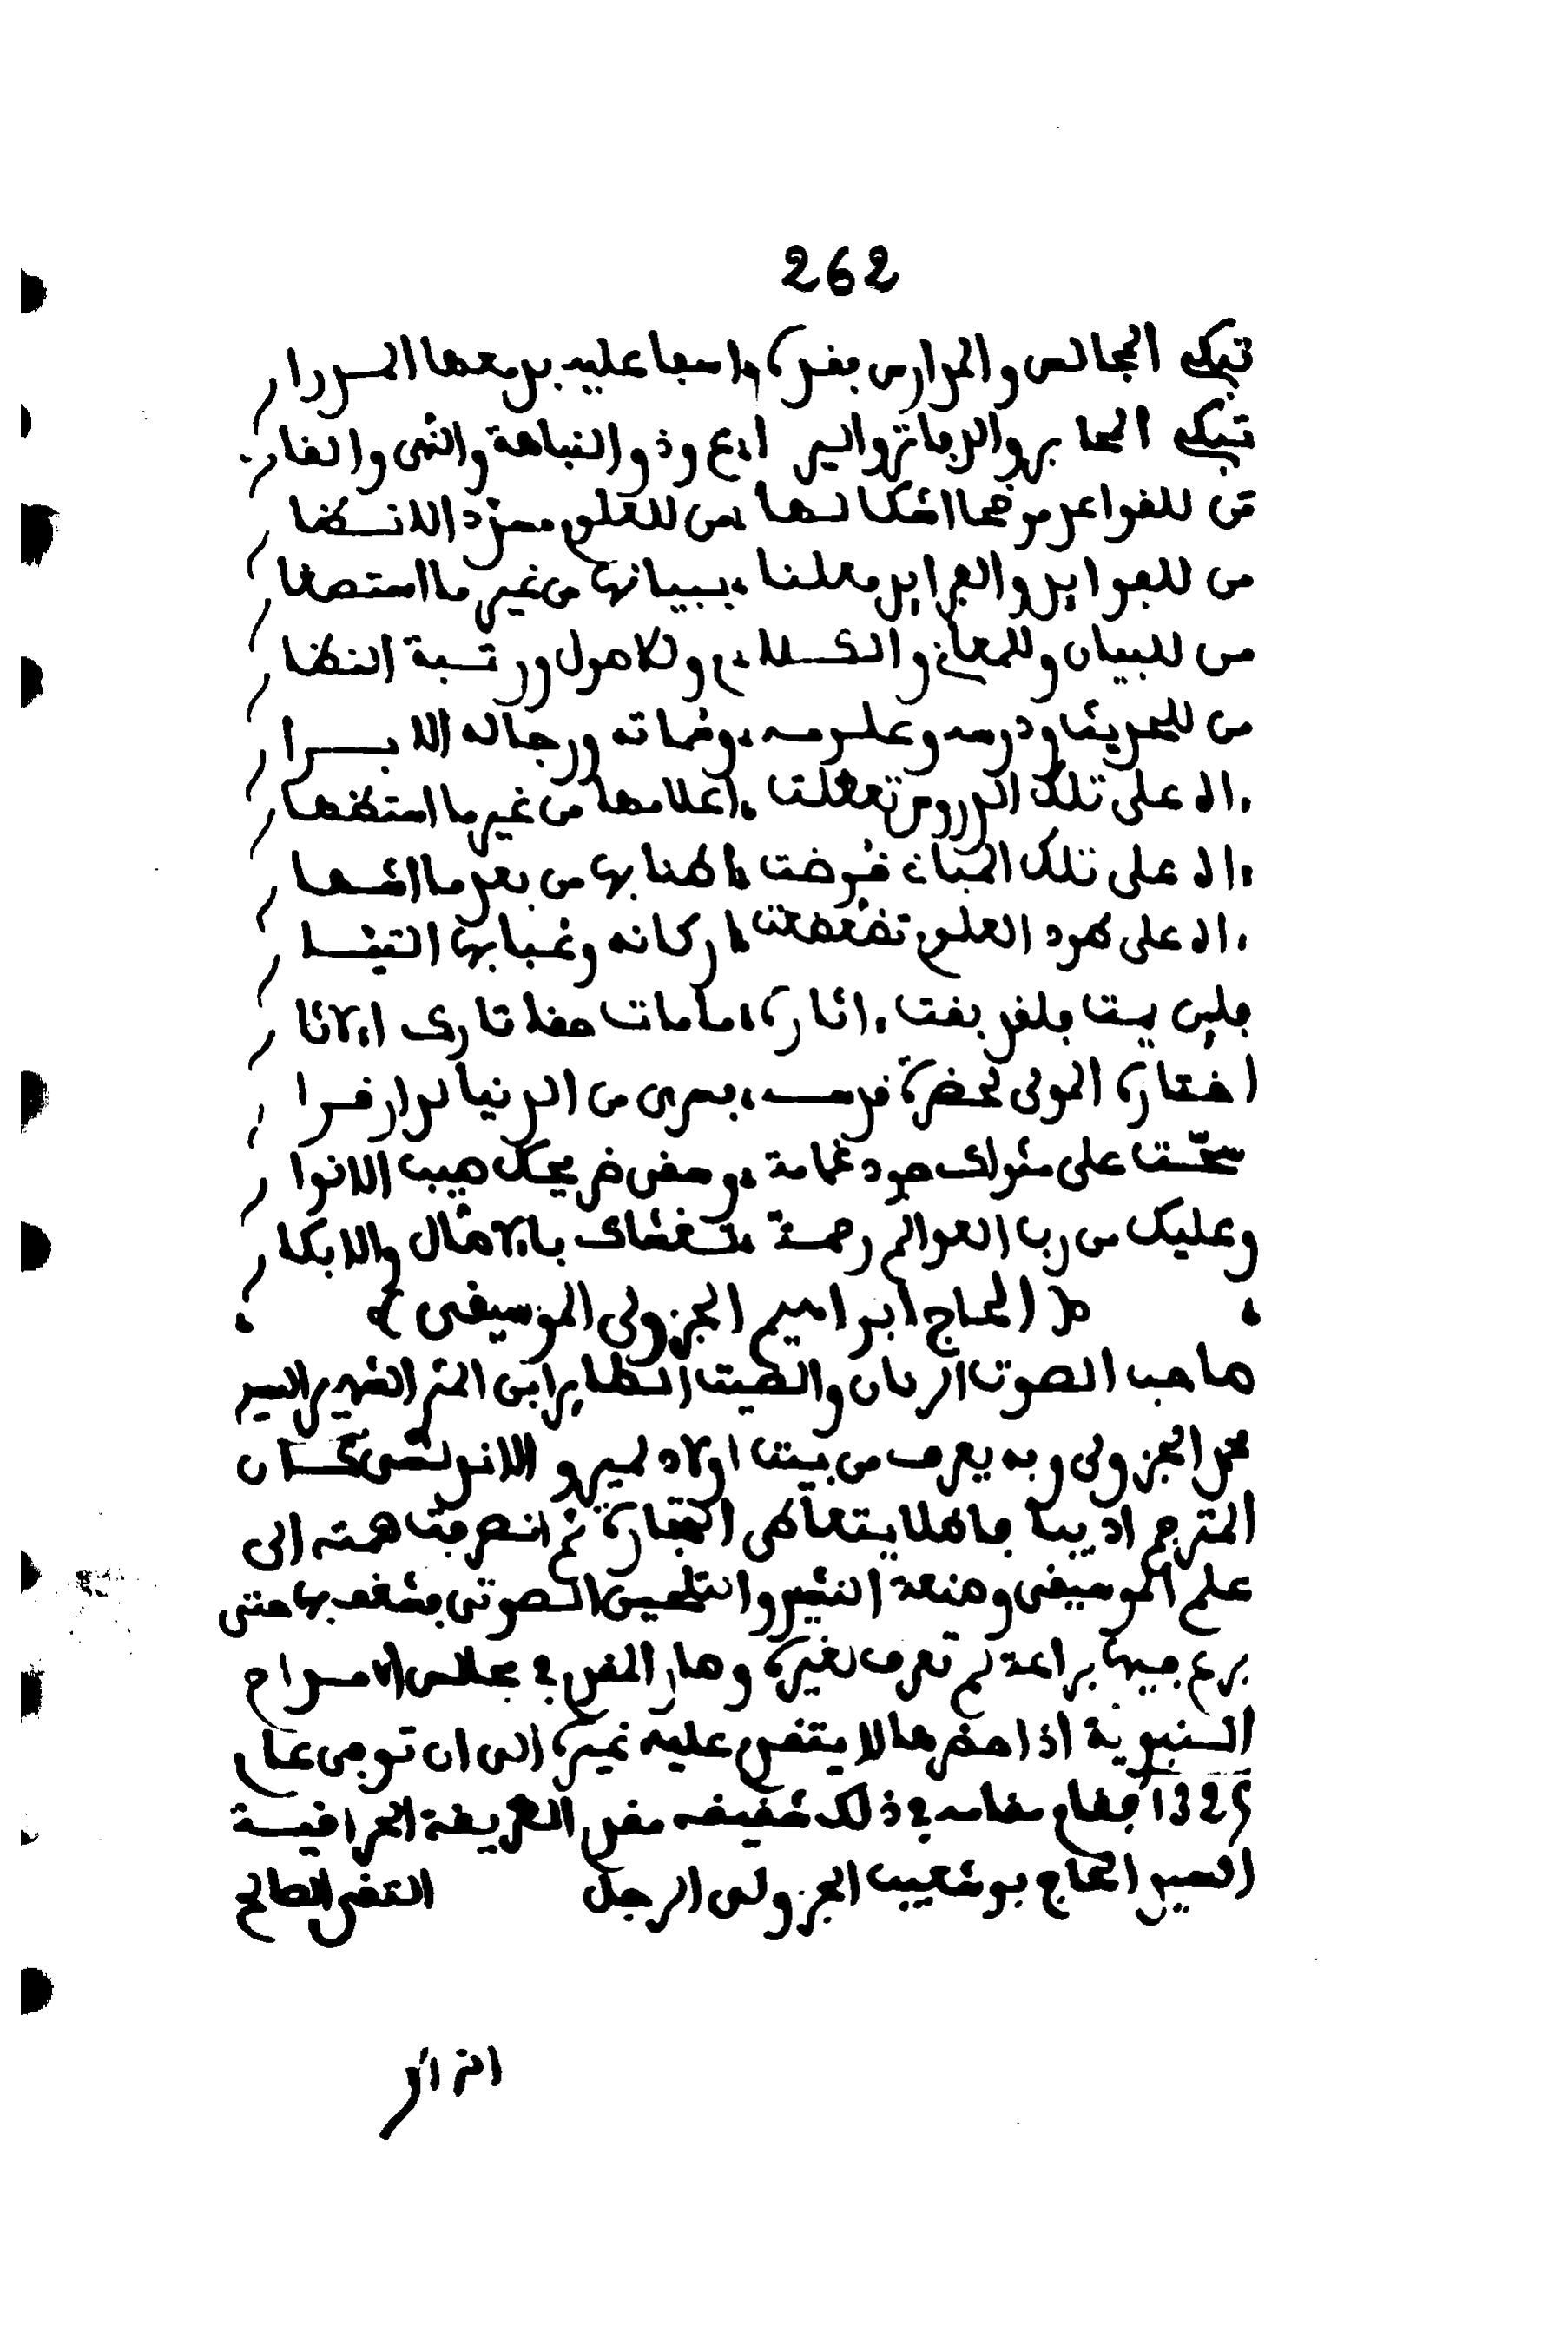 262
تبكي المجالس والمدارس بفده اسفا عليه بدمعها المدرار
تبكي المحابر والدفاتر واليراع وذو النباهة والنهى والقار
من للقواعد موضحا اشكالها من للعلوم مسرد الانظار
من للفوائد والفرائد معلنا ببيانها من غير ما استصغار
من للبيان وللمعاني والكلام وللاصول ورتبة النظار
من للحديث ودرسه وعلومه وثقاته ورجاله الابرار
اه على تلك الدروس تعطلت اعلامها من غير ما استظهار
اه على تلك المباني قوضت اطنابها من بعد ما اشهار
اه على طود العلوم تضعضعت اركانه وعبابها التيار
فلين يمت فلقد بقت اثاره ما مات حقا تارك الاثار
اختاره المولى لحضرة قدسه فسرى من الدنيا لدار قرار
سحت على مثواك جود غمامة وسقى ضريحك صيب الانوار
وعليك من رب العوالم رحمة تغشاك بالاصال والابكار
(الحاج ابراهيم الجزولي الموسيقي)
صاحب الصوت الرنان والصيت الطاير ابن المنزه الشهير السيد
محمد الجزولي وبه يعرف من بيت اولاد لميرو الاندلسي كان
المترجم اديبا فاضلا يتعاطى التجارة ثم انصرفت همته الى
علم الموسيقى وصنعة النشيد والتلحين الصوتي فشغف بها حتى
برع فيها براعة لم تعرف لغيره وصار المقدم في مجالس الامداح
النبوية اذا حضرها لا يتقدم عليه غيره الى ان توفي عام
1325 فقام مقامه في ذلك شقيقه مقدم الطريقة الحراقية
السيد الحاج بوشعيب الجزولي الرجل التقي الصالح